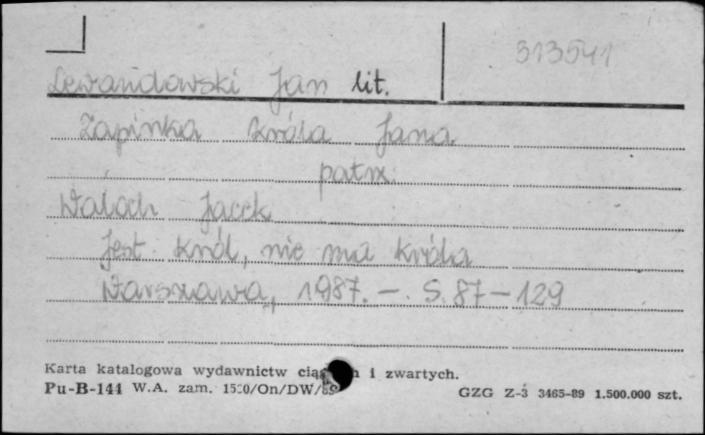 313541
Lewandowski Jan lit.
Zapinka króla Jana
patrz:
Wałoch Jacek
Jest król, nie ma króla
Warszawa, 1987. — S. 87–129
Karta katalogowa wydawnictw i zwartych.
Pu-B-144 W.A. zam. /On/DW/
GZG Z-3 3465-89 1.500.000 szt.